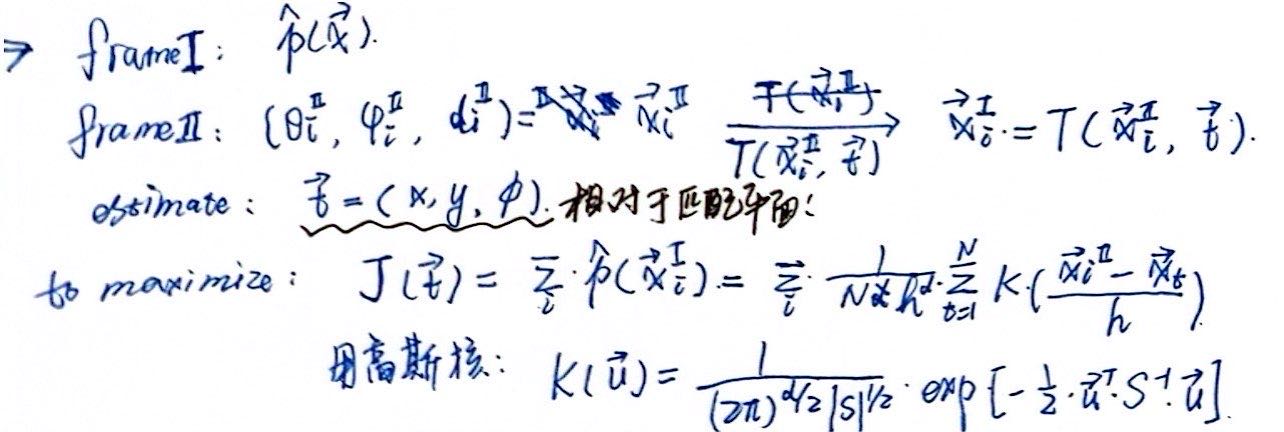 → frameI: p̂(x⃗).
frameII: (θᵢᴵᴵ, φᵢᴵᴵ, dᵢᴵᴵ) = x⃗ᵢᴵᴵ →[T(x⃗ᵢᴵᴵ, t⃗)] x⃗ᵢᴵ = T(x⃗ᵢᴵᴵ, t⃗).
estimate: t⃗ = (x, y, ϕ). 相对于匹配平面:
to maximize: J(t⃗) = Σᵢ p̂(x⃗ᵢᴵ) = Σᵢ · 1/(N h^d) · Σ_{t=1}^{N} K·((x⃗ᵢᴵᴵ − x⃗ₜ)/h)
用高斯核: K(u⃗) = 1/((2π)^{d/2} |S|^{1/2}) · exp[−½ · u⃗ᵀ · S⁻¹ · u⃗].